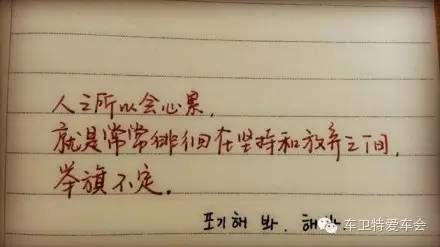 人之所以会心累,
就是常常徘徊在坚持和放弃之间,
举旗不定。
포기해 봐. 해
车卫特爱车会